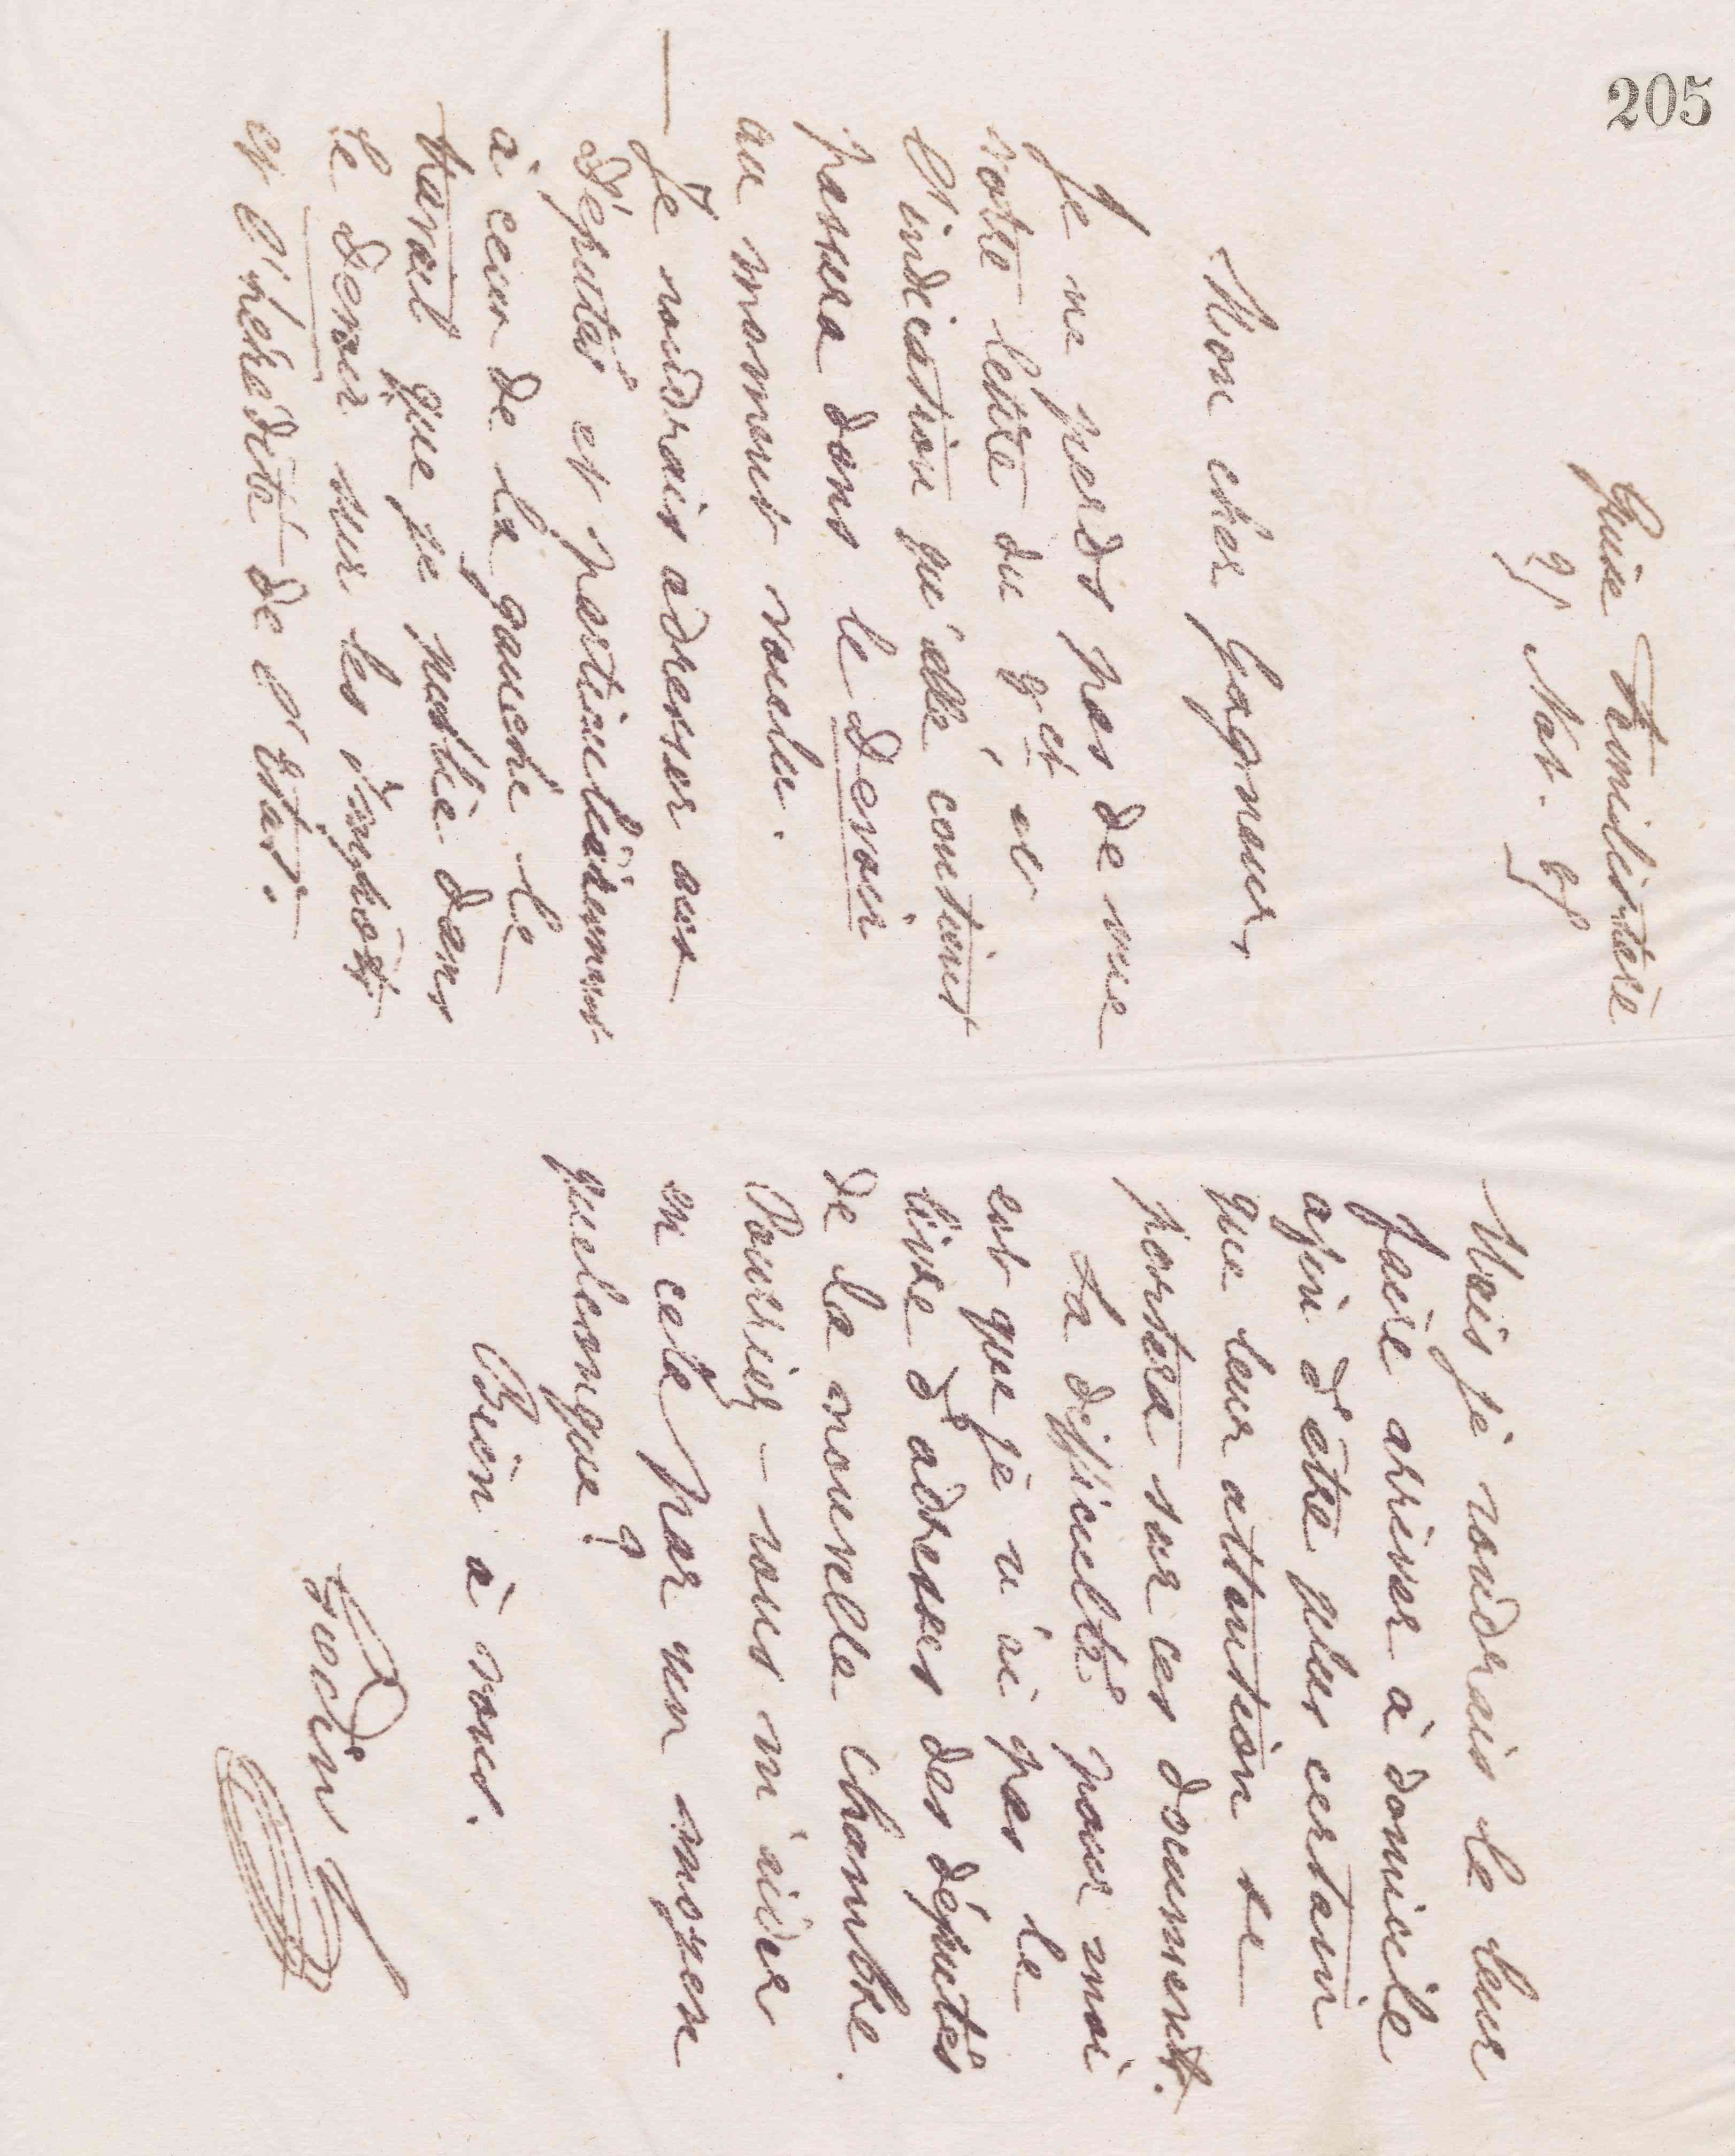 205
Guise Familistère
21 Nov. 81
Mon cher Gagneur,
Je ne perds pas de vue
votre lettre du 9 et et
l'indication qu'elle contient
passera dans le Devoir
au moment voulu.
Je voudrais adresser aux
députés et particulièrement
à ceux de la gauche le
travail que je publie dans
Le Devoir sur les impôts
et l'hérédité de l'État.
Mais je voudrais le leur
faire arriver à domicile
afin d'être plus certain
que leur attention se
portera sur ces documents.
La difficulté pour moi
est que je n'ai pas le
livre d'adresses des députés
de la nouvelle Chambre.
Pourriez-vous m'aider
en cela par un moyen
quelconque?
Bien à vous.
Godin